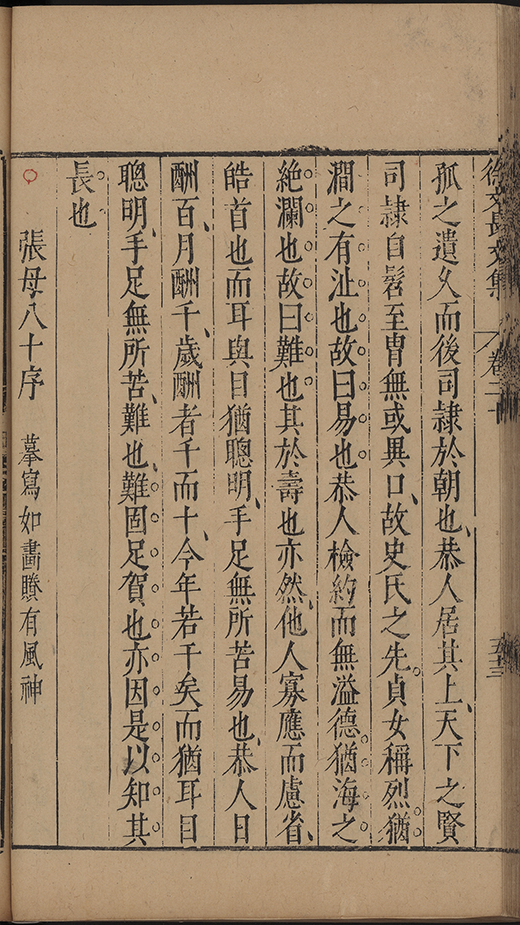 徐文長文集 卷二十 五十三
孤之遺久而後司隷於朝也恭人居其上天下之賢
司隷自髫至胄無或異口故史氏之先貞女稱烈猶
澗之有沚也故曰易也恭人檢約而無溢德猶海之
絶瀾也故曰難也其於壽也亦然他人寡應而慮省
皓首也而耳與目猶聰明手足無所苦易也恭人日
酬百月酬千歲酬者千而十今年若干矣而猶耳目
聰明手足無所苦難也難固足賀也亦因是以知其
長也
張母八十序 摹寫如畵賸有風神